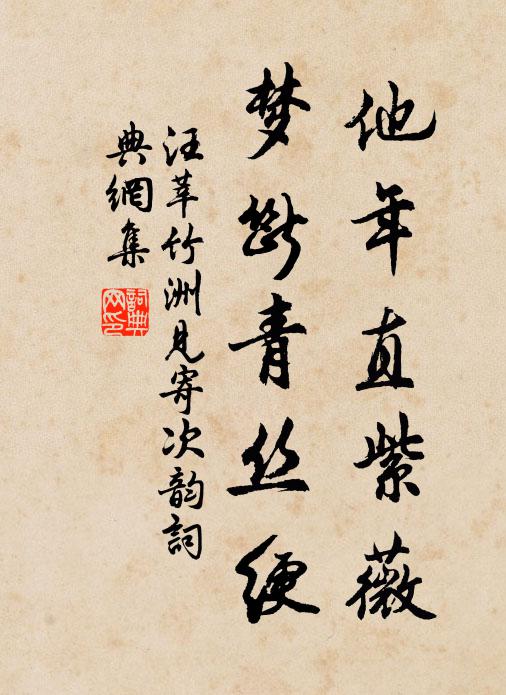 他年直紫薇
梦断青丝绠
汪莘竹洲见寄次韵词
典網集
詞典网印